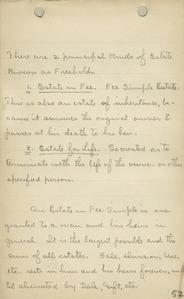 There are 2 principal kinds of Estate
Known as Freeholds.
1. Estate in Fee. Fee Simple Estate.
This is also an estate of inheritance, be-
cause it survives the original owner &
passes at his death to his heir.
2. Estate for Life. Is created as to
terminate with the life of the owner or other
specified person.
An Estate in Fee Simple is one
granted to a man and his heirs in
general. It is the largest possible and the
sum of all estates. Sale, division, Use,
etc. rests in him and his heirs forever, un-
til alienated by Sale, Gift, etc.
52